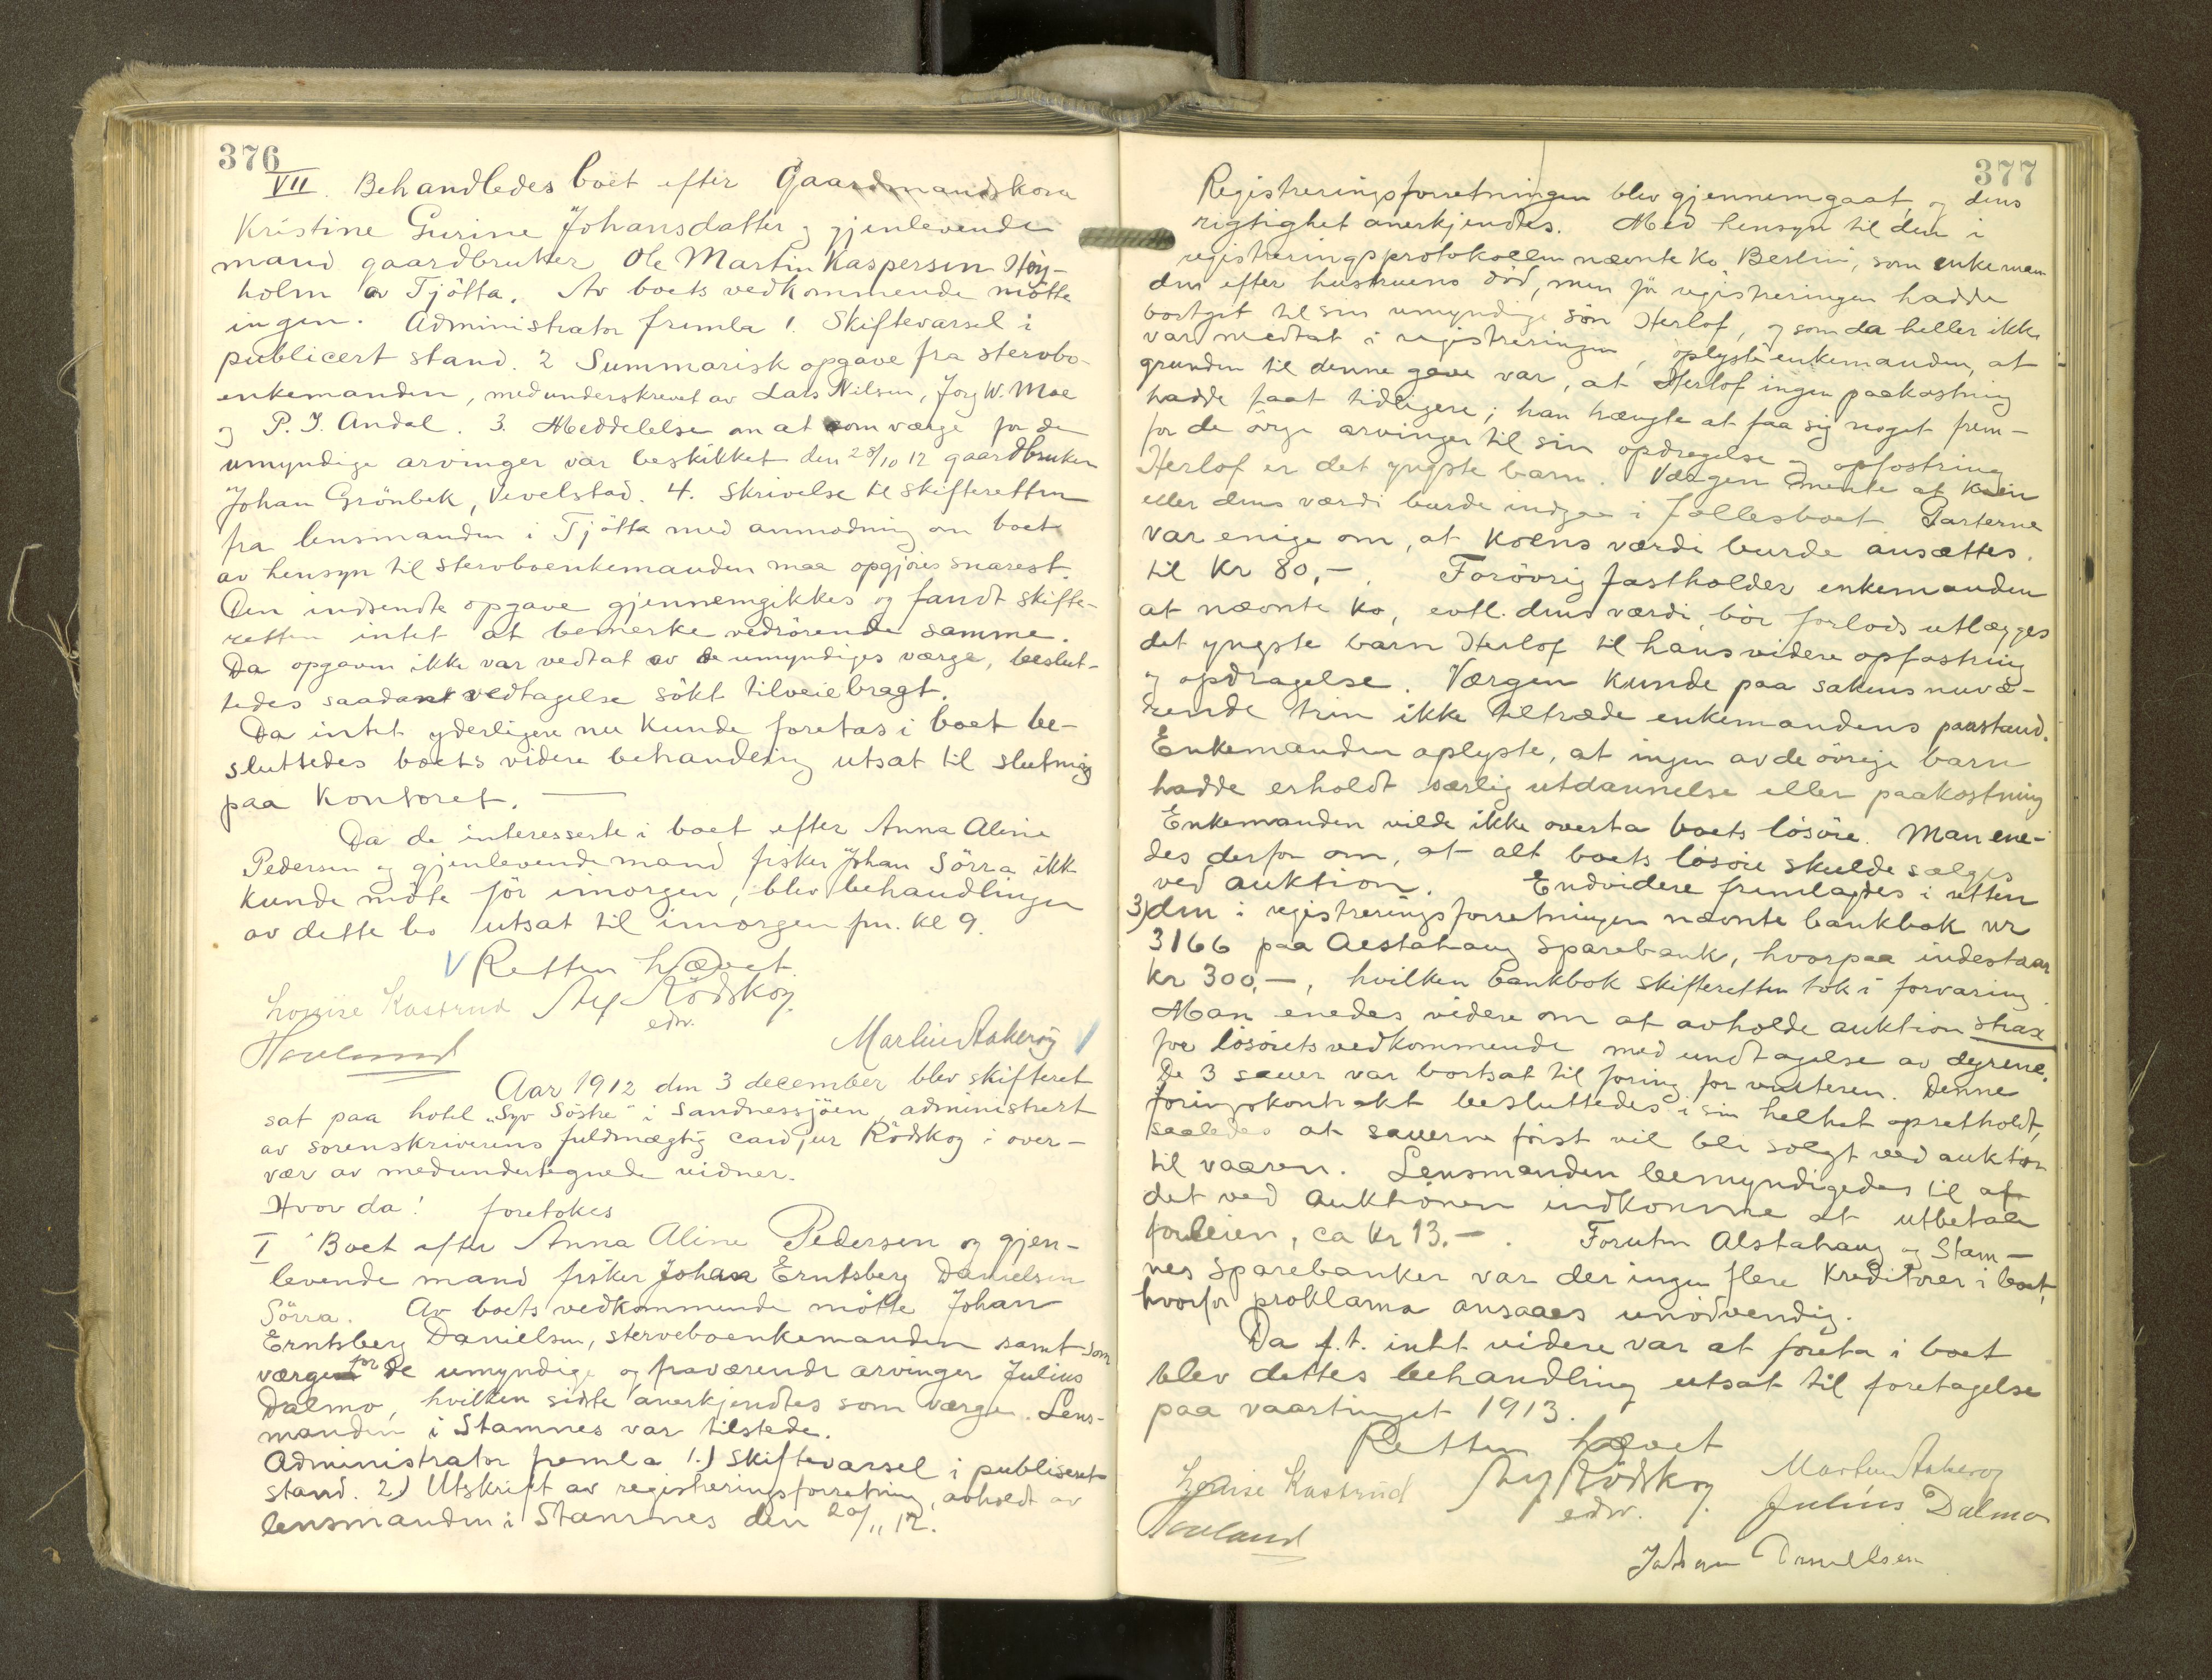 376
VII. Behandledes boet efter Gaardmandskona
Kristine Gurine Johansdatter og gjenlevende
mand gaardbruker Ole Martin Kaspersen Høy-
holm av Tjøtta. Av boets vedkommende møtte
ingen. Administrator fremla 1. Skiftevarsel i
publicert stand. 2 Summarisk opgave fra stervbo-
enkemanden, medunderskrevet av Lars Nilsen, Jørg W. Moe
og P. J. Andal. 3. Meddelelse om at som værge for de
umyndige arvinger var beskikket den 28/10 12 gaardbruker
Johan Grönbek, Vevelstad. 4. Skrivelse til skifteretten
fra lensmanden i Tjøtta med anmodning om boet
av hensyn til stervboenkemanden maa opgjøres snarest.
Den indsendte opgave gjennemgikkes og fandt skifte-
retten intet at bemerke vedrørende samme.
Da opgaven ikke var vedtat av de umyndiges værge, beslut-
tedes saadant vedtagelse søkt tilveiebragt.
Da intet yderligere nu kunde foretas i boet be-
sluttedes boets videre behandling utsat til slutning
paa kontoret. —
Da de interesserte i boet efter Anna Aline
Pedersen og gjenlevende mand fisker Johan Sörra ikke
kunde møte før imorgen, blev behandlingen
av dette bo utsat til imorgen fm. kl 9.
V Retten hævet.
Louise Kastrud Rödskog
edv.
Hovland Martin Aakerøy V
Aar 1912 den 3 december blev skifteret
sat paa hotel "Syv Söstre" i Sandnessjøen, administrert
av sorenskriverens fuldmægtig cand. jur Rödskog i over-
vær av medundertegnede vidner.
Hvor da! foretokes
I Boet efter Anna Aline Pedersen og gjen-
levende mand fisker Johan Erntsberg Danielsen
Sörra. Av boets vedkommende møtte Johan
Erntsberg Danielsen, sterveboenkemanden samt som
værge for de umyndige og fraværende arvinger Julius
Dalmo, hvilken sidste anerkjendtes som værge. Lens-
manden i Stamnes var tilstede.
Administrator fremla 1.) Skiftevarsel i publisert
stand. 2.) Utskrift av registreringsforretning, avholdt av
lensmanden i Stamnes den 20/11 12.
377
Registreringsforretningen blev gjennemgaat, og dens
rigtighet anerkjendtes. Med hensyn til den i
registreringsprotokollen nævnte ko Berlin, som enkeman
den efter hustruens död, men før registreringen hadde
bortgit til sin umyndige sön Herlof, og som da heller ikke
var medtat i registreringen, oplyste enkemanden, at
grunden til denne gave var, at Herlof ingen paakostning
hadde faat tidligere; han trængte at faa sig noget frem-
for de övrige arvinger til sin opdragelse og opfostring
Herlof er det yngste barn. Værgen mente at koen
eller dens værdi burde indgaa i fællesboet. Parterne
var enige om, at koens værdi burde ansættes.
til kr 80,-. Forøvrig fastholder enkemanden
at nævnte ko, evtl. dens værdi, bör forlods utlægges
det yngste barn Herlof til hans videre opfostring
og opdragelse. Værgen kunde paa sakens nuvæ-
rende trin ikke tiltræde enkemandens paastand.
Enkemanden oplyste, at ingen av de övrige barn
hadde erholdt særlig utdannelse eller paakostning
Enkemanden vilde ikke overta boets lösöre. Man ene-
des derfor om, at alt boets lösöre skulde sælges
ved auktion. Endvidere fremlagdes i retten
3) den i registreringsforretningen nævnte bankbok nr
3166 paa Alstahaug Sparebank, hvorpaa indestaar
kr 300,-, hvilken bankbok skifteretten tok i forvaring.
Man enedes videre om at avholde auktion strax
for lösörets vedkommende med undtagelse av dyrene.
De 3 sauer var bortsat til foring for vinteren. Denne
foringskontrakt besluttedes i sin helhet opretholdt,
saaledes at sauerne først vil bli solgt ved auktion
til vaaren. Lensmanden bemyndigedes til af
det ved auktionen indkomne at utbetale
forleien, ca kr 13.-. Foruten Alstahaug og Stam-
nes Sparebanker var der ingen flere kreditorer i boet,
hvorfor proklama ansaaes unödvendig.
Da f. t. intet videre var at foreta i boet
blev dettes behandling utsat til foretagelse
paa vaartinget 1913.
Retten hævet
Louise Kastrud Rödskog Martin Aakerøy
edv. Julius Dalmo
Hovland
Johan Danielsen